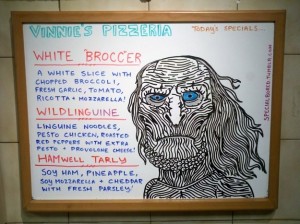 VINNIE'S PIZZERIA
TODAY'S SPECIALS...
WHITE 'BROCC'ER
A WHITE SLICE WITH
CHOPPED BROCCOLI,
FRESH GARLIC, TOMATO,
RICOTTA + MOZZARELLA!
WILDLINGUINE
LINGUINE NOODLES,
PESTO CHICKEN, ROASTED
RED PEPPERS WITH EXTRA
PESTO + PROVOLONE CHEESE!
HAMWELL TARLY
SOY HAM, PINEAPPLE,
SOY MOZZARELLA + CHEDDAR
WITH FRESH PARSLEY!
SPECIALBORED.TUMBLR.COM